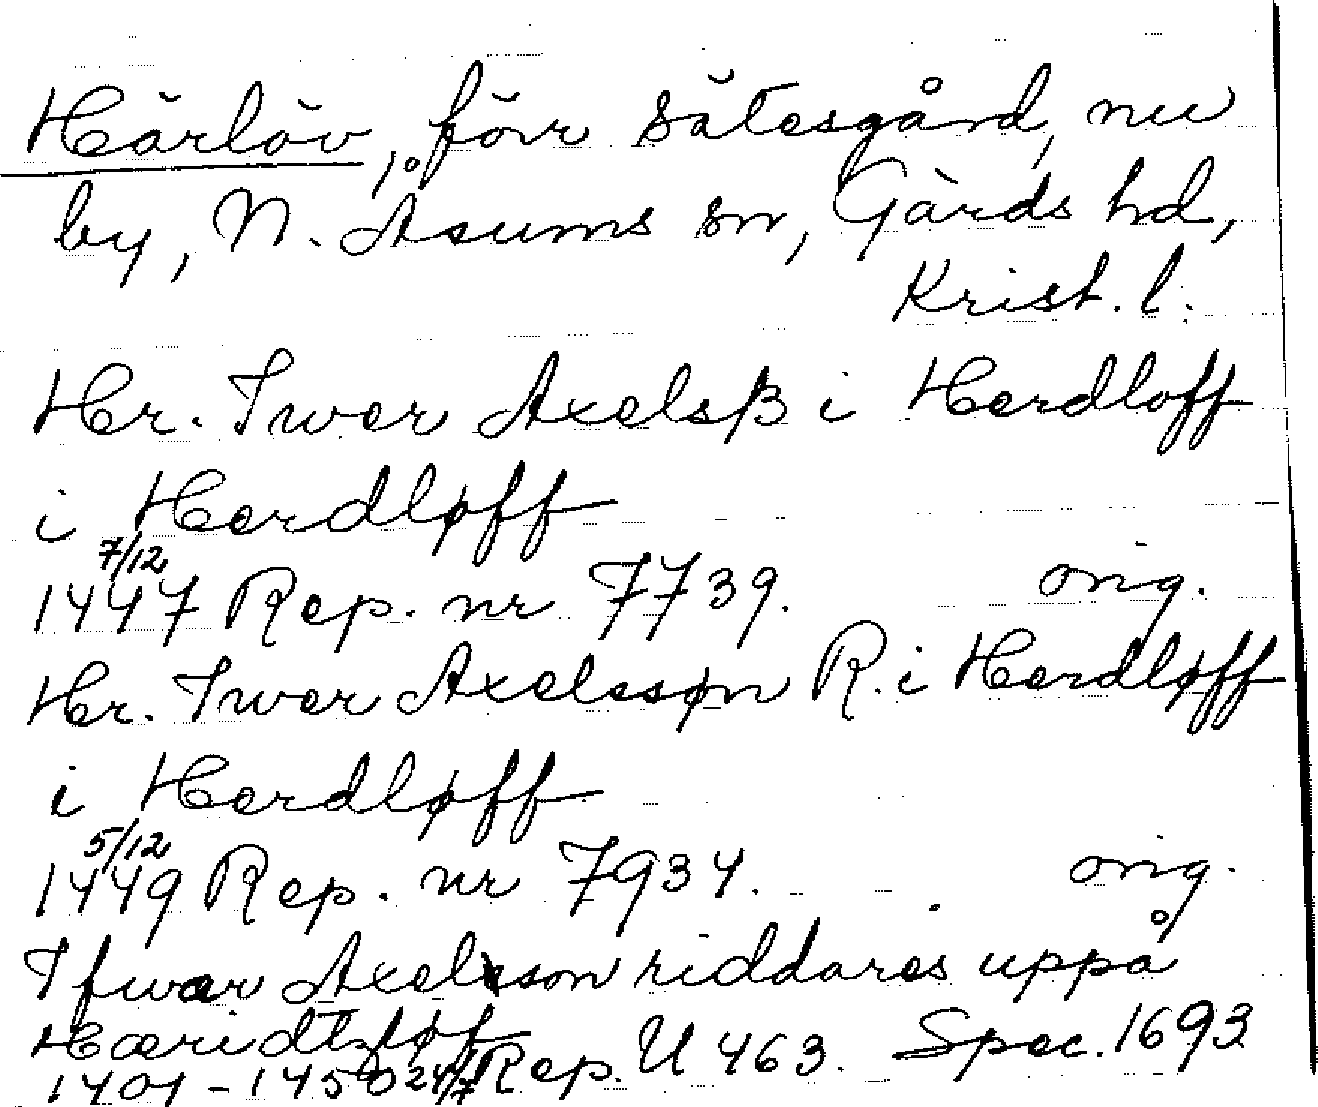 Härlöv, förr sätesgård, nu
by, N. Åsums sn, Gärds hd,
Krist. l.
Hr. Iwer Axelsß i Herdloff
i Herdløff
7/12
1447 Rep. nr 7739. orig.
Hr. Iwer Axelssøn R. i Herdløff
i Herdløff
5/12
1449 Rep. nr 7934. orig.
Ifwer Axelsson riddares uppå
1401-1450 24/7 Rep. U 463. Spec. 1693